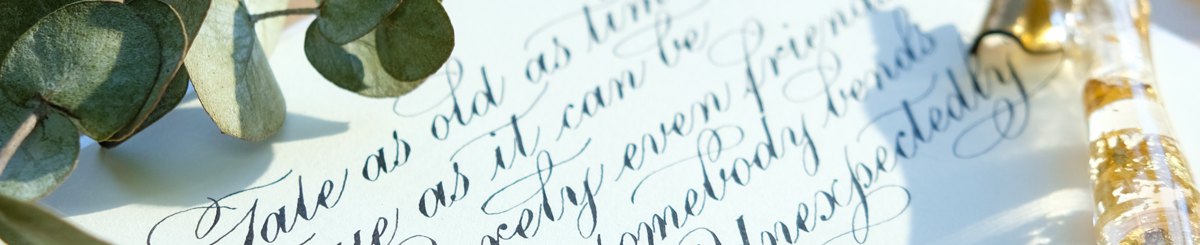 Tale as old as tim
ue as it can be
rely even friends
omebody bends
Unexpectedly